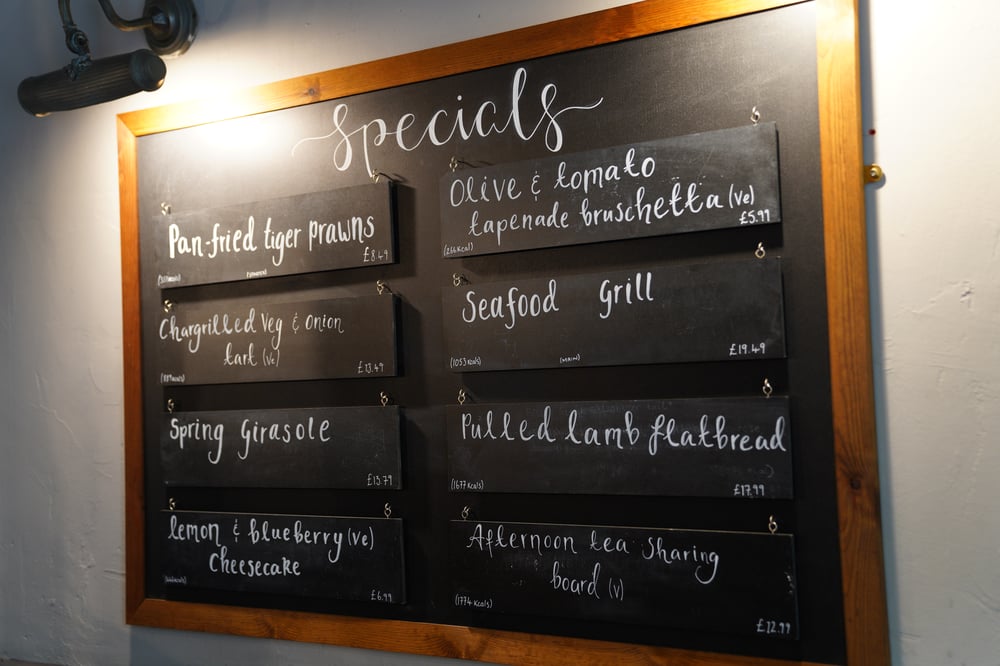 Specials
Pan-fried tiger prawns
£8.49
Chargrilled Veg & onion
tart (ve)
£13.49
Spring Girasole
£13.79
lemon & blueberry (ve)
Cheesecake
£6.99
Olive & tomato
tapenade bruschetta (ve)
£5.99
(266Kcal)
Seafood Grill
£19.49
(1053Kcals)
(MAIN)
Pulled lamb flatbread
(1677Kcals)
£17.99
Afternoon tea Sharing
board (V)
(1774Kcals)
£22.99